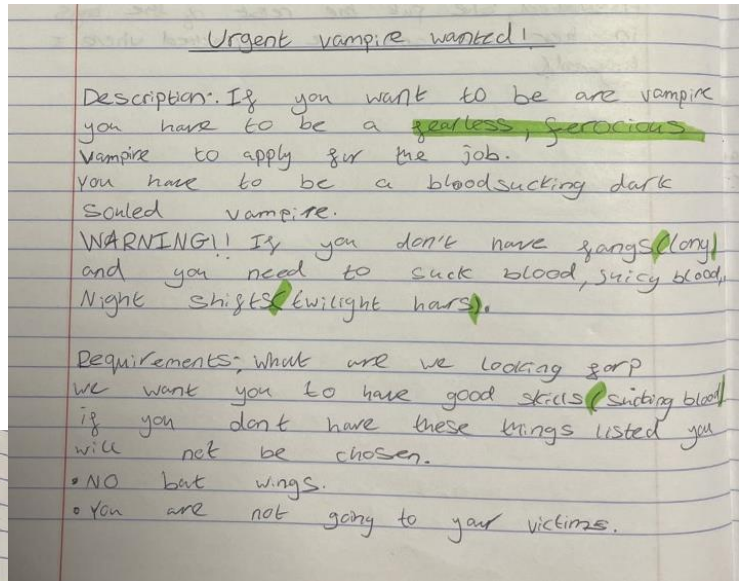 Urgent vampire wanted!
Description: If you want to be are vampire
you have to be a fearless, ferocious
vampire to apply for the job.
You have to be a bloodsucking dark
souled vampire.
WARNING!! If you don't have fangs (long)
and you need to suck blood, juicy blood,
Night shifts (twilight hars).
Requirements: what are we looking for?
we want you to have good skills (sucting blood)
if you don't have these things listed you
will not be chosen.
• NO bat wings.
• You are not going to your victims.